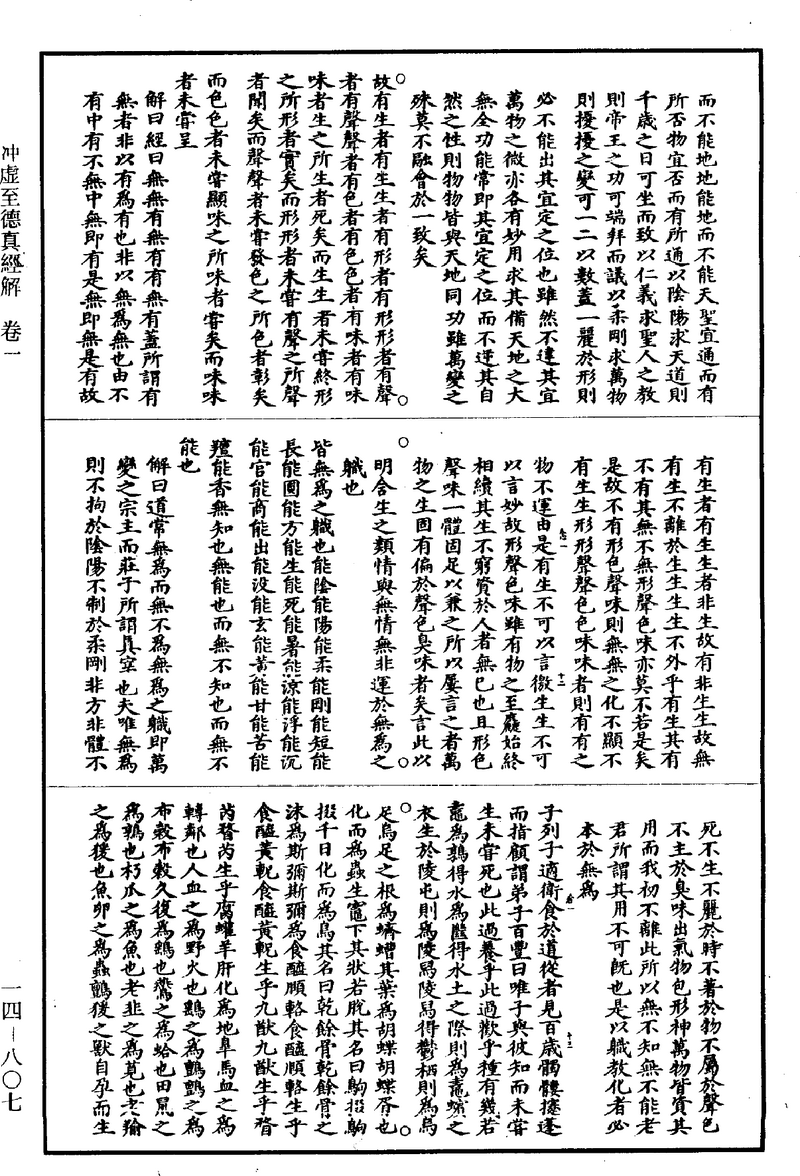 而不能地地能地而不能天聖宜通而有
所否物宜否而有所通以陰陽求天道則
千歲之日可坐而致以仁義求聖人之教
則帝王之功可端拜而議以柔剛求萬物
則擾擾之變可一二以數蓋一麗於形則
必不能出其宜定之位也雖然不違其宜
萬物之微亦各有妙用求其備天地之大
無全功能常即其宜定之位而不逆其自
然之性則物物皆與天地同功雖萬變之
殊莫不融會於一致矣
故有生者有生生者有形者有形形者有聲
者有聲聲者有色者有色色者有味者有味
味者生之所生者死矣而生生者未嘗終形
之所形者實矣而形形者未嘗有聲之所聲
者聞矣而聲聲者未嘗發色之所色者彰矣
而色色者未嘗顯味之所味者嘗矣而味味
者未嘗呈
解曰經曰無無有無有有無有蓋所謂有
無者非以有為有也非以無為無也由不
有中有不無中無即有是無即無是有故
有生者有生生者非生故有非生生故無
有生不離於生生生生不外乎有生其有
不有其無不無形聲色味亦莫不若是矣
是故不有形色聲味則無無之化不顯不
有生生形形聲聲色色味味者則有有之
物不運由是有生不可以言微生生不可
以言妙故形聲色味雖有物之至麤始終
相續其生不窮資於人者無已也且形色
聲味一體固足以兼之所以屢言之者萬
物之生固有偏於聲色臭味者矣言此以
明含生之類情與無情無非運於無為之
職也
皆無為之職也能陰能陽能柔能剛能短能
長能圓能方能生能死能暑能涼能浮能沉
能宮能商能出能沒能玄能黃能甘能苦能
羶能香無知也無能也而無不知也而無不
能也
解曰道常無為而無不為無為之職即萬
變之宗主而莊子所謂真宰也夫唯無為
則不拘於陰陽不制於柔剛非方非體不
死不生不麗於時不著於物不屬於聲色
不主於臭味出氣物包形神萬物皆資其
用而我初不離此所以無不知無不能老
君所謂其用不可既也是以職教化者必
本於無為
子列子適衛食於道從者見百歲髑髏攓蓬
而指顧謂弟子百豐曰唯予與彼知而未嘗
生未嘗死也此過養乎此過歡乎種有幾若
鼃為鶉得水為㡭得水土之際則為鼃蠙之
衣生於陵屯則為陵舄陵舄得鬱栖則為烏
足烏足之根為蠐螬其葉為胡蝶胡蝶胥也
化而為蟲生竈下其狀若脫其名曰駒掇駒
掇千日化而為鳥其名曰乾餘骨乾餘骨之
沫為斯彌斯彌為食醯頤輅食醯頤輅生乎
食醯黃軦食醯黃軦生乎九猷九猷生乎瞀
芮瞀芮生乎腐蠸羊肝化為地皐馬血之為
轉鄰也人血之為野火也鷂之為鸇鸇之為
布穀布穀久復為鷂也鷰之為蛤也田鼠之
為鶉也朽瓜之為魚也老韭之為莧也老羭
之為猨也魚卵之為蟲亶爰之獸自孕而生
冲虛至德真經解　卷一
一四—八〇七